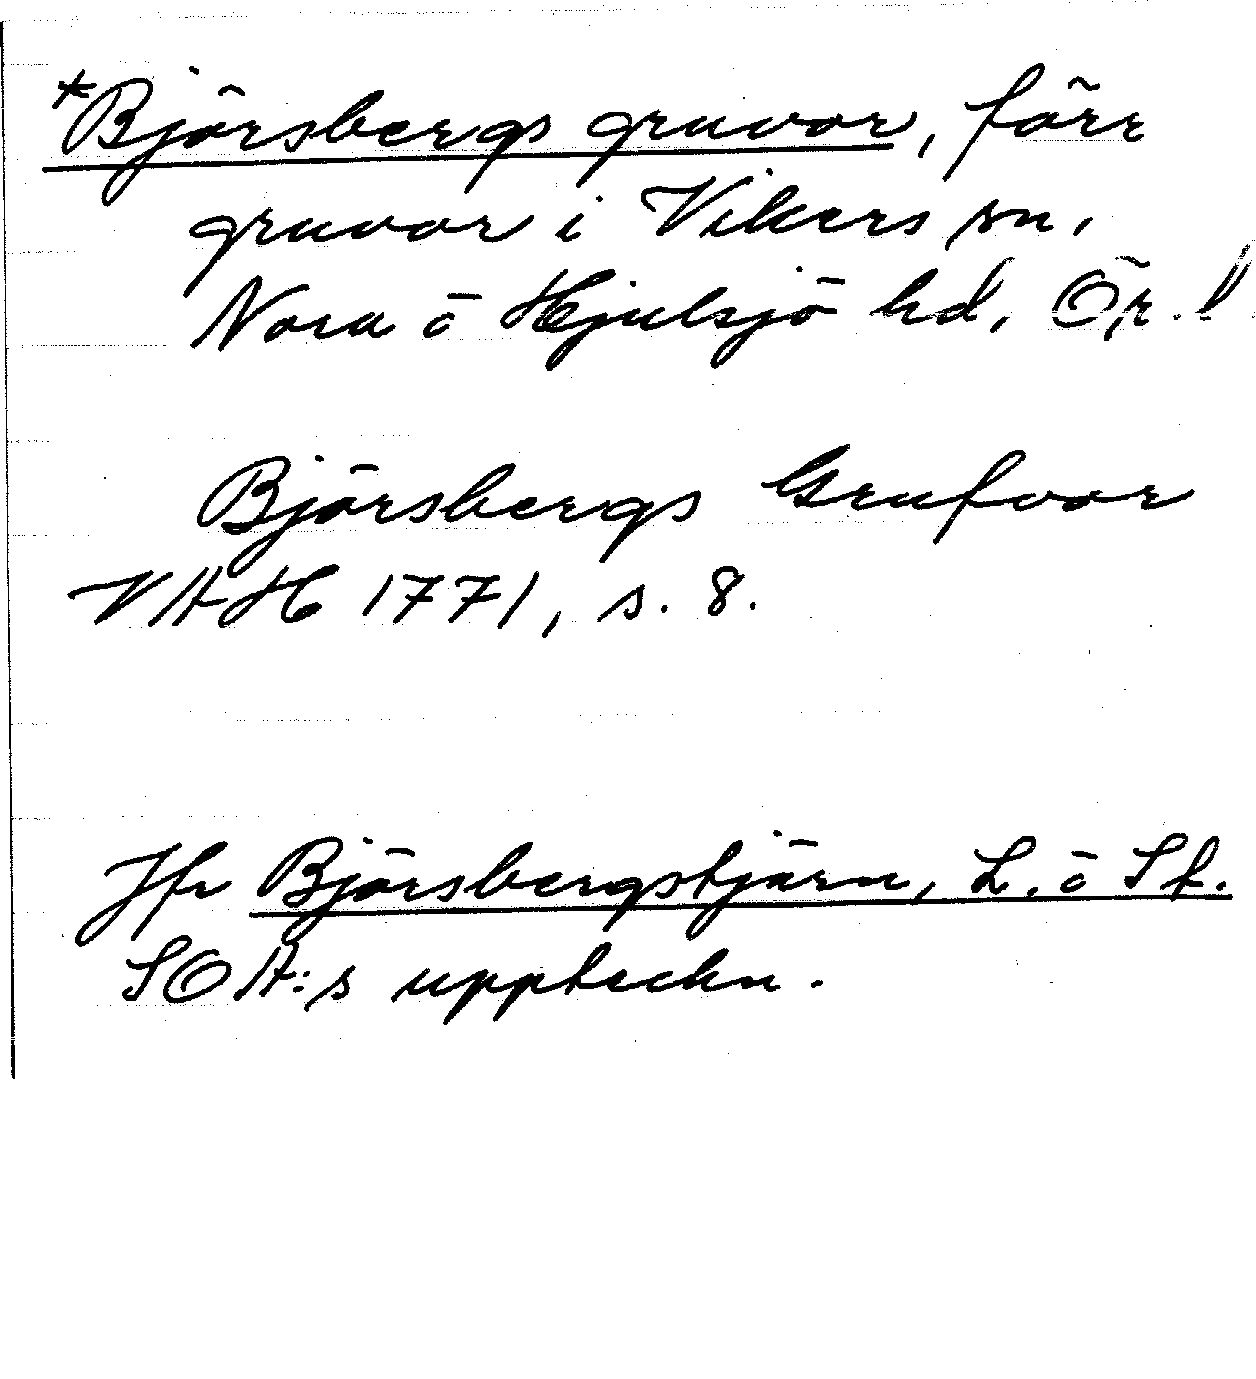 *Björsbergs gruvor, förr
gruvor i Vikers sn,
Nora o Hjulsjö hd, Ör. l
Björsbergs Grufvor
VAH 1771, s. 8.
Jfr Björsbergstjärn, L. o Sf.
SOA:s uppteckn.